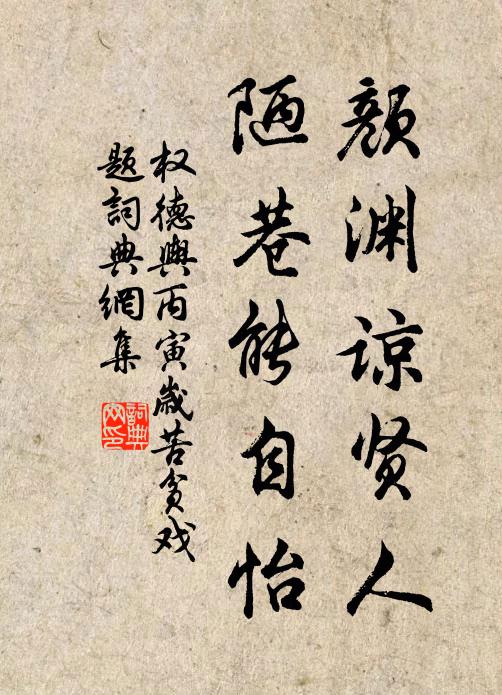 颜渊谅贤人
陋巷能自怡
权德舆丙寅岁苦贫戏
题词典网集
词典网印